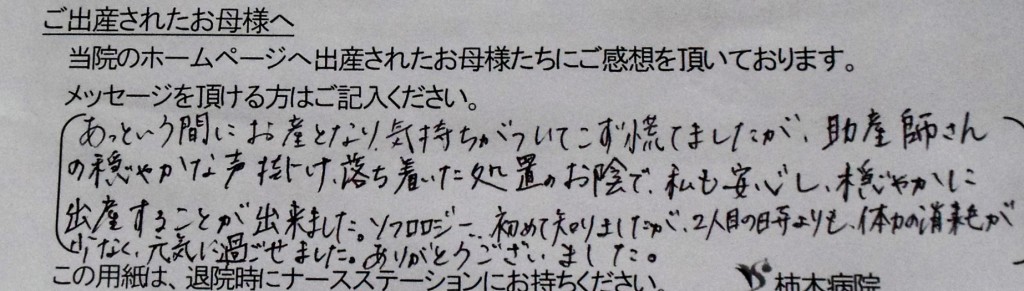 ご出産されたお母様へ
当院のホームページへ出産されたお母様たちにご感想を頂いております。
メッセージを頂ける方はご記入ください。
あっという間にお産となり、気持ちがついてこず慌てましたが、助産師さん
の穏やかな声掛け、落ち着いた処置のお陰で、私も安心し、穏やかに
出産することが出来ました。ソフロロジー、初めて知りましたが、2人目の時よりも、体力の消耗が
少なく、元気に過ごせました。ありがとうございました。
この用紙は、退院時にナースステーションにお持ちください。 柿木病院